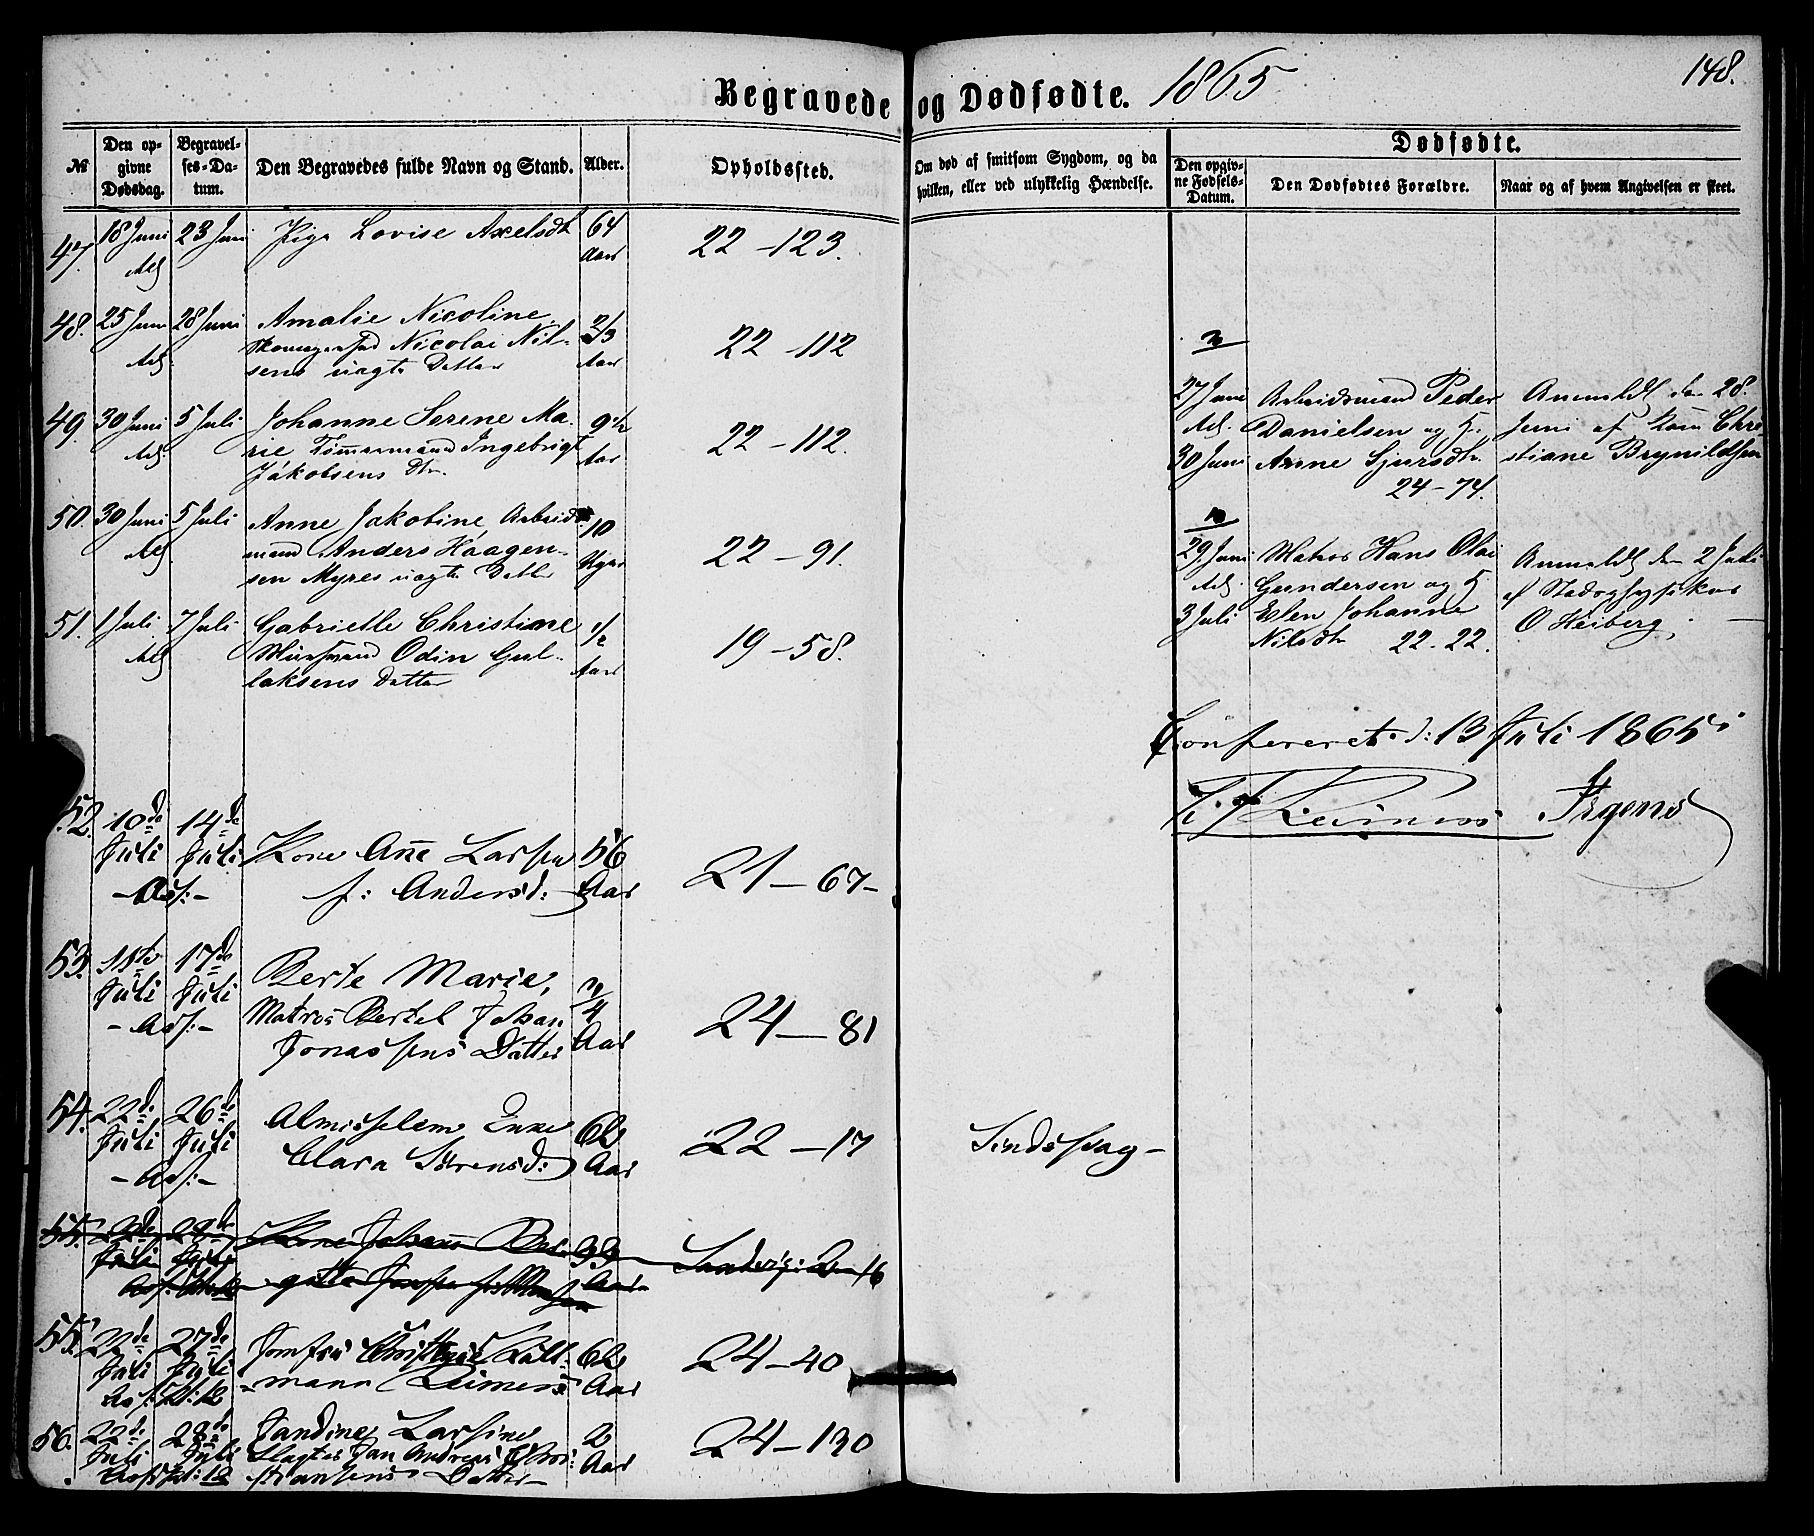 Begravede og Dødfødte. 1865
148.
№
Den opgivne Dødsdag.
Begravelses-Datum.
Den Begravedes fulde Navn og Stand.
Alder.
Opholdssted.
Om død af smitsom Sygdom, og da hvilken, eller ved ulykkelig Hændelse.
Dødfødte.
Den opgivne Fødsels-Datum.
Den Dødfødtes Forældre.
Naar og af hvem Angivelsen er skeet.
47. 18 Juni 23 Juni Pige Lovise Axelsdt 64 22 - 123.
Aar
48. 25 Juni 28 Juni Amalie Nicoline 2/3 22 - 112
Nicolai Nil-
sens uægte Datter Aar
49. 30 Juni 5 Juli Johanne Serene Ma- 9 22 - 112.
rie Tømmermand Ingebrigt
Jakobsens Dtr. Aar
50. 30 Juni 5 Juli Anne Jakobine, Arbeids- 10 22 - 91.
mand Anders Haagen-
sen Myres uægte Datter
51. 1 Juli 7 Juli Gabrielle Christine 1/2 19 - 58.
Odin Gul-
laksens Datter Aar
3
27 Juni Arbeidsmand Peder Anmeldt den 28.
Danielsen og H. Juni af Chri-
30 Juni Anne Sjursdtr. stiane Brynildsen
24 - 74.
10
29. Juni Matros Hans Olai Anmeldt den 2 Juli
Gundersen og H. af Stadsphysikus
3 Juli Elen Johanne O Heiberg.
Nilsdtr 22 - 22.
Confereret d: 13 Juli 1865
Reimers Irgens
52. 10de 14de Kone Ane Larsen 56 21 - 67 -
Juli Juli f: Andersd: Aar
53. 11te 17de Berte Marie, 3/4 24 - 81
Juli Juli Matros Bertel Johan
Jonassens Datter Aar
54. 22de 26de Almisselem Enke 62 22 - 17 Sindssvag -
Juli Juli Clara Sörensd: Aar
55. 28de Kone Johanne Ber- 33
Juli Aar 16
55. 22de 27de Jomfru Christine Kalt- 62 24 - 40
Juli Juli mann Reimers Aar
56. 22de 28de Jandine Larsine 2 24 - 130
Juli Juli Slagter Jan Andreas Chri-
stiansens Datter - Aar